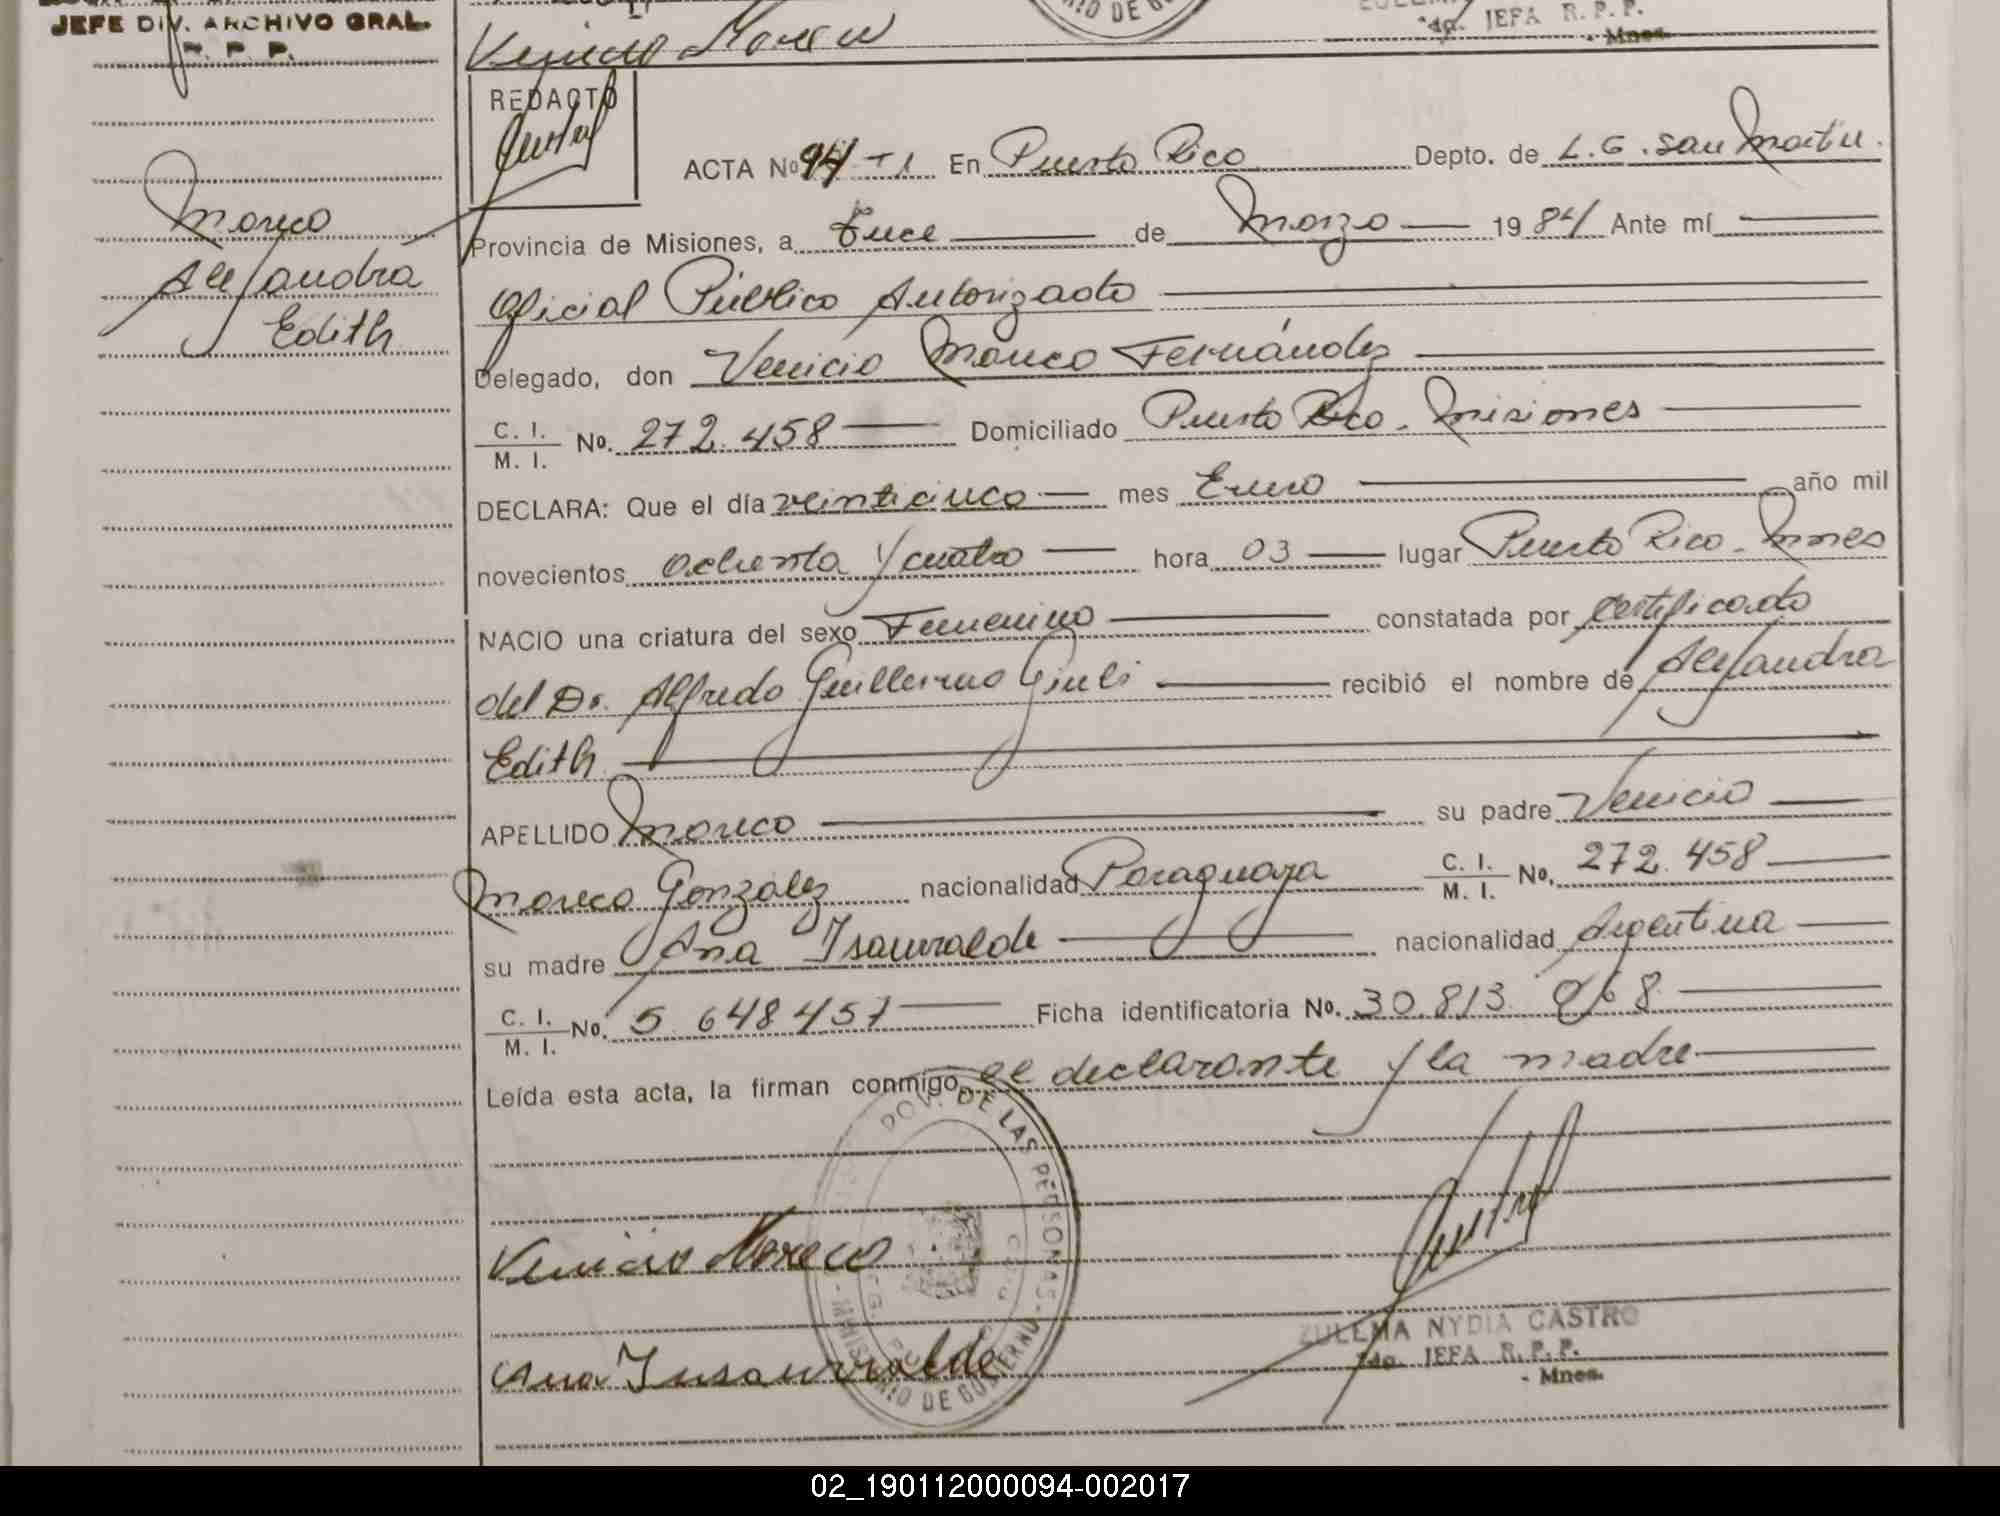 JEFE DIV. ARCHIVO GRAL.
R. P. P.
RIO DE GO
Jefa R. P. P.
Mnes.
REDACTO
ACTA No 94 T I En Puerto Rico Depto. de L. G. San Martin.
Moreco
Alejandra
Edith
Provincia de Misiones, a Trece de Marzo 1984 Ante mí
Oficial Público Autorizado
Delegado, don Venicio Moreco Fernández
C. I. / M. I. No. 272.458 Domiciliado Puerto Rico. Misiones
DECLARA: Que el día veinticinco mes Enero año mil
novecientos ochenta y cuatro hora 03 lugar Puerto Rico. Mnes
NACIO una criatura del sexo Femenino constatada por certificado
del Dr. Alfredo Guillermo recibió el nombre de Alejandra
Edith
APELLIDO Moreco su padre Venicio
Moreco González nacionalidad Paraguaya C. I. / M. I. No. 272.458
su madre Ana Isaurralde nacionalidad Argentina
C. I. / M. I. No. 5.648457 Ficha identificatoria No. 30.813.068
Leída esta acta, la firman conmigo, el declarante y la madre
DE LAS PERSONAS
MINISTERIO DE GOBIERNO
Venicio Moreco
ZULEMA NYDIA CASTRO
JEFA R. P. P.
- Mnes.
Ana Insaurralde
02_190112000094-002017